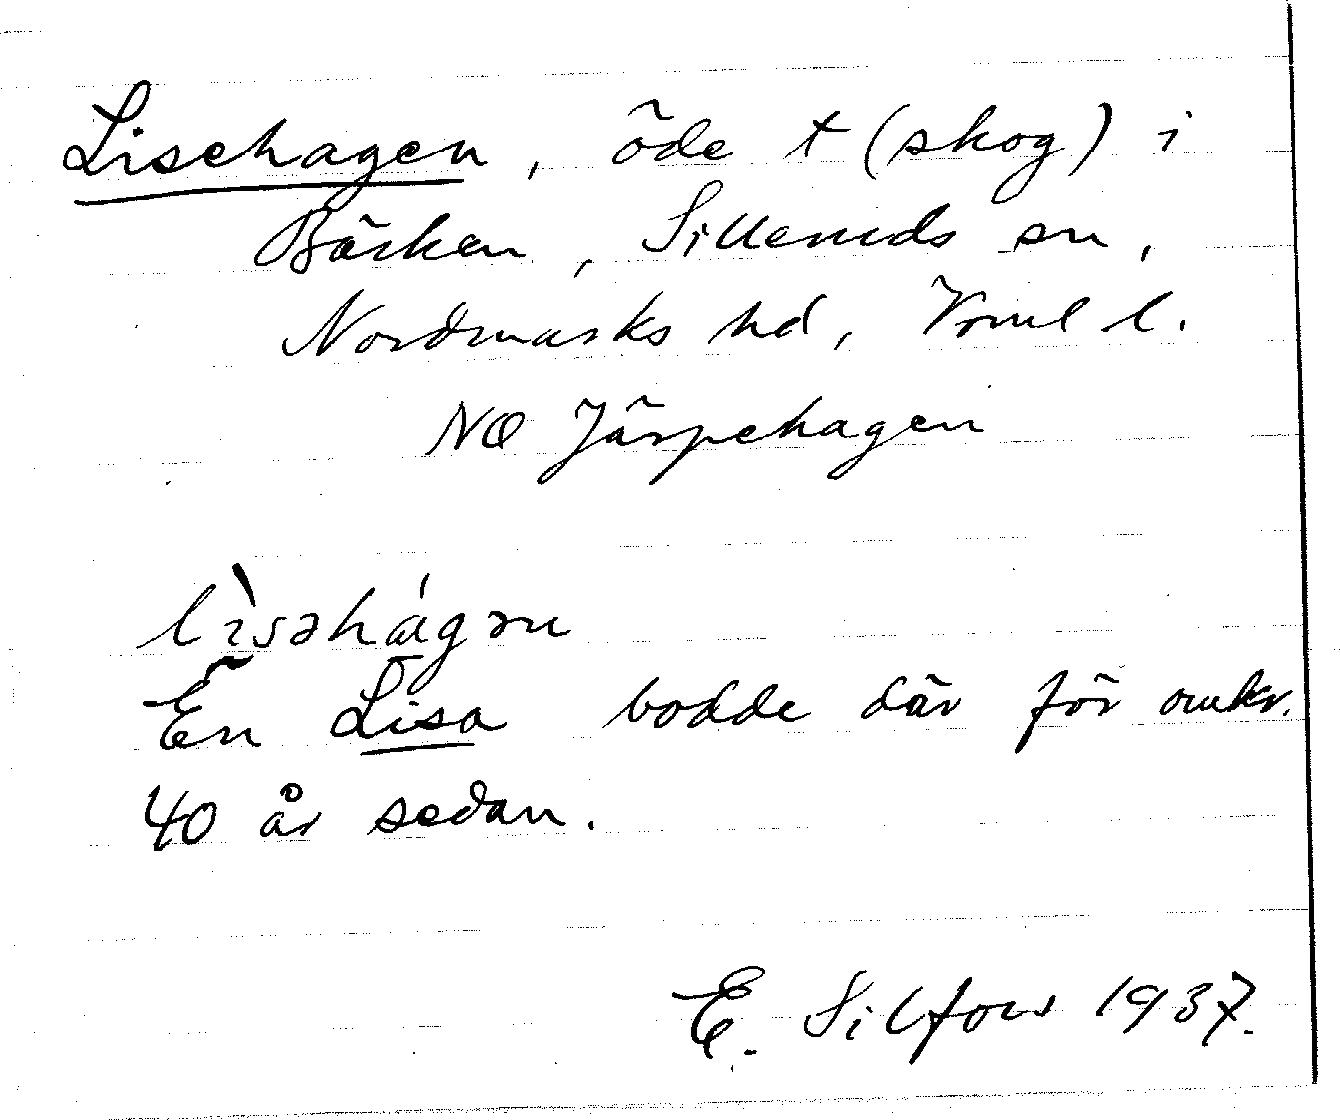 Lisehagen, öde t (skog) i
Bäcken, Silleruds sn,
Nordmarks hd, Vrml l.
NO Järpehagen
lìsəhágən
En Lisa bodde där för omkr.
40 år sedan.
E. Silfors 1937.